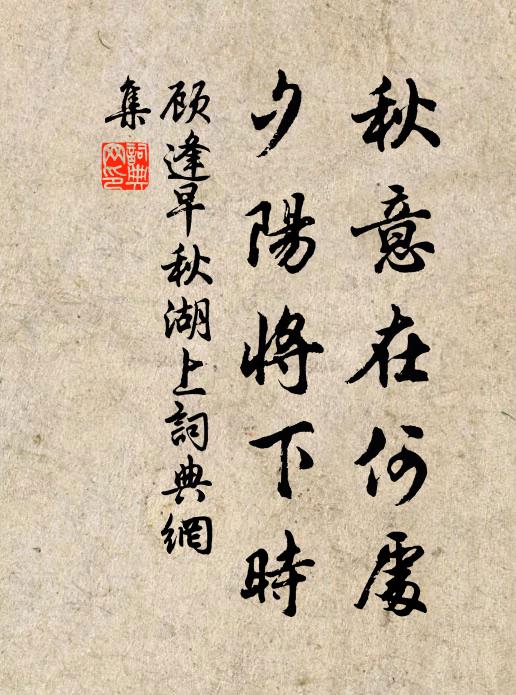 秋意在何處
夕陽將下時
顾逢早秋湖上詞典網
集
詞典
网印